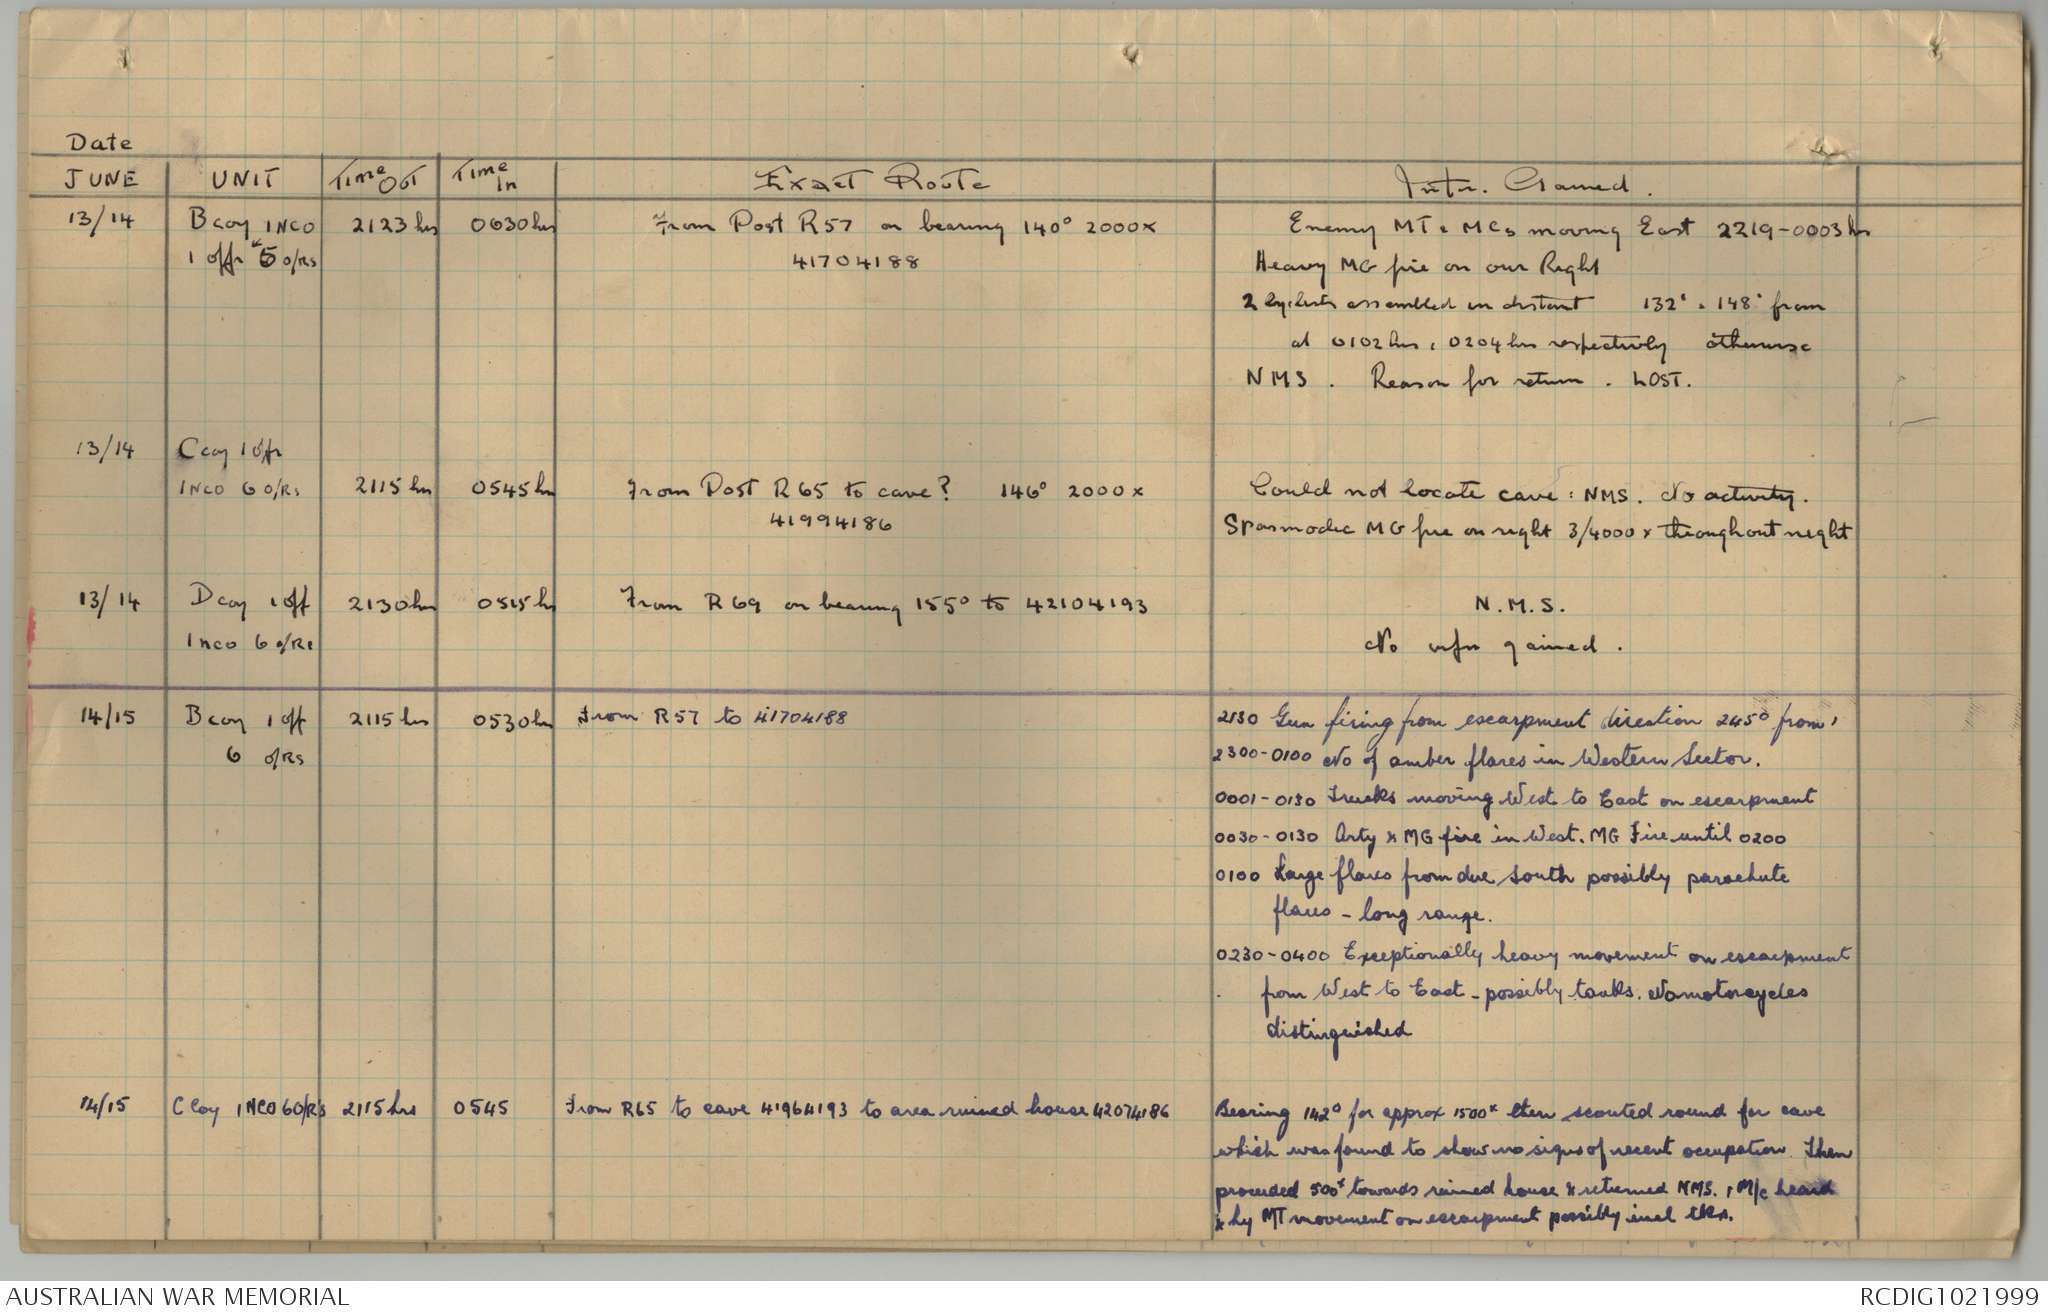 Date
JUNE UNIT Time Out Time In Exact Route Infn. Gained.
13/14 B coy 1 NCO 2123 hrs 0630 hrs From Post R57 on bearing 140° 2000x Enemy MT & MCs moving East 2219-0003 hrs
1 offr 5 O/Rs 41704188 Heavy MG fire on our Right
2 assembled in distant 132° & 148° from
at 0102 hrs & 0204 hrs respectively otherwise
NMS. Reason for return. LOST.
13/14 C coy 1 offr
1 NCO 6 O/Rs 2115 hrs 0545 hrs From Post R65 to cave? 146° 2000x Could not locate cave: NMS. No activity.
41994186 Spasmodic MG fire on right 3/4000x throughout night
13/14 D coy 1 off 2130 hrs 0515 hrs From R69 on bearing 155° to 42104193 N.M.S.
1 NCO 6 O/Rs No infn gained.
14/15 B coy 1 off 2115 hrs 0530 hrs From R57 to 41704188 2130 Gun firing from escarpment direction 245° from,
6 O/Rs 2300-0100 No of amber flares in Western Sector.
0001-0130 Trucks moving West to East on escarpment
0030-0130 Arty & MG fire in West. MG Fire until 0200
0100 Large flares from due South possibly parachute
flares - long range.
0230-0400 Exceptionally heavy movement on escarpment
from West to East - possibly tanks. No motorcycles
distinguished
14/15 C Coy 1 NCO 6 O/R's 2115 hrs 0545 From R65 to cave 41964193 to area ruined house 42074186 Bearing 142° for approx 1500x then scouted round for cave
which was found to show no signs of recent occupation. Then
proceeded 500x towards ruined house & returned NMS. 1 M/c heard
& hy MT movement on escarpment possibly incl tks.
AUSTRALIAN WAR MEMORIAL RCDIG1021999